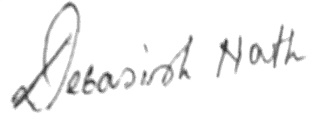 Debasish Nath